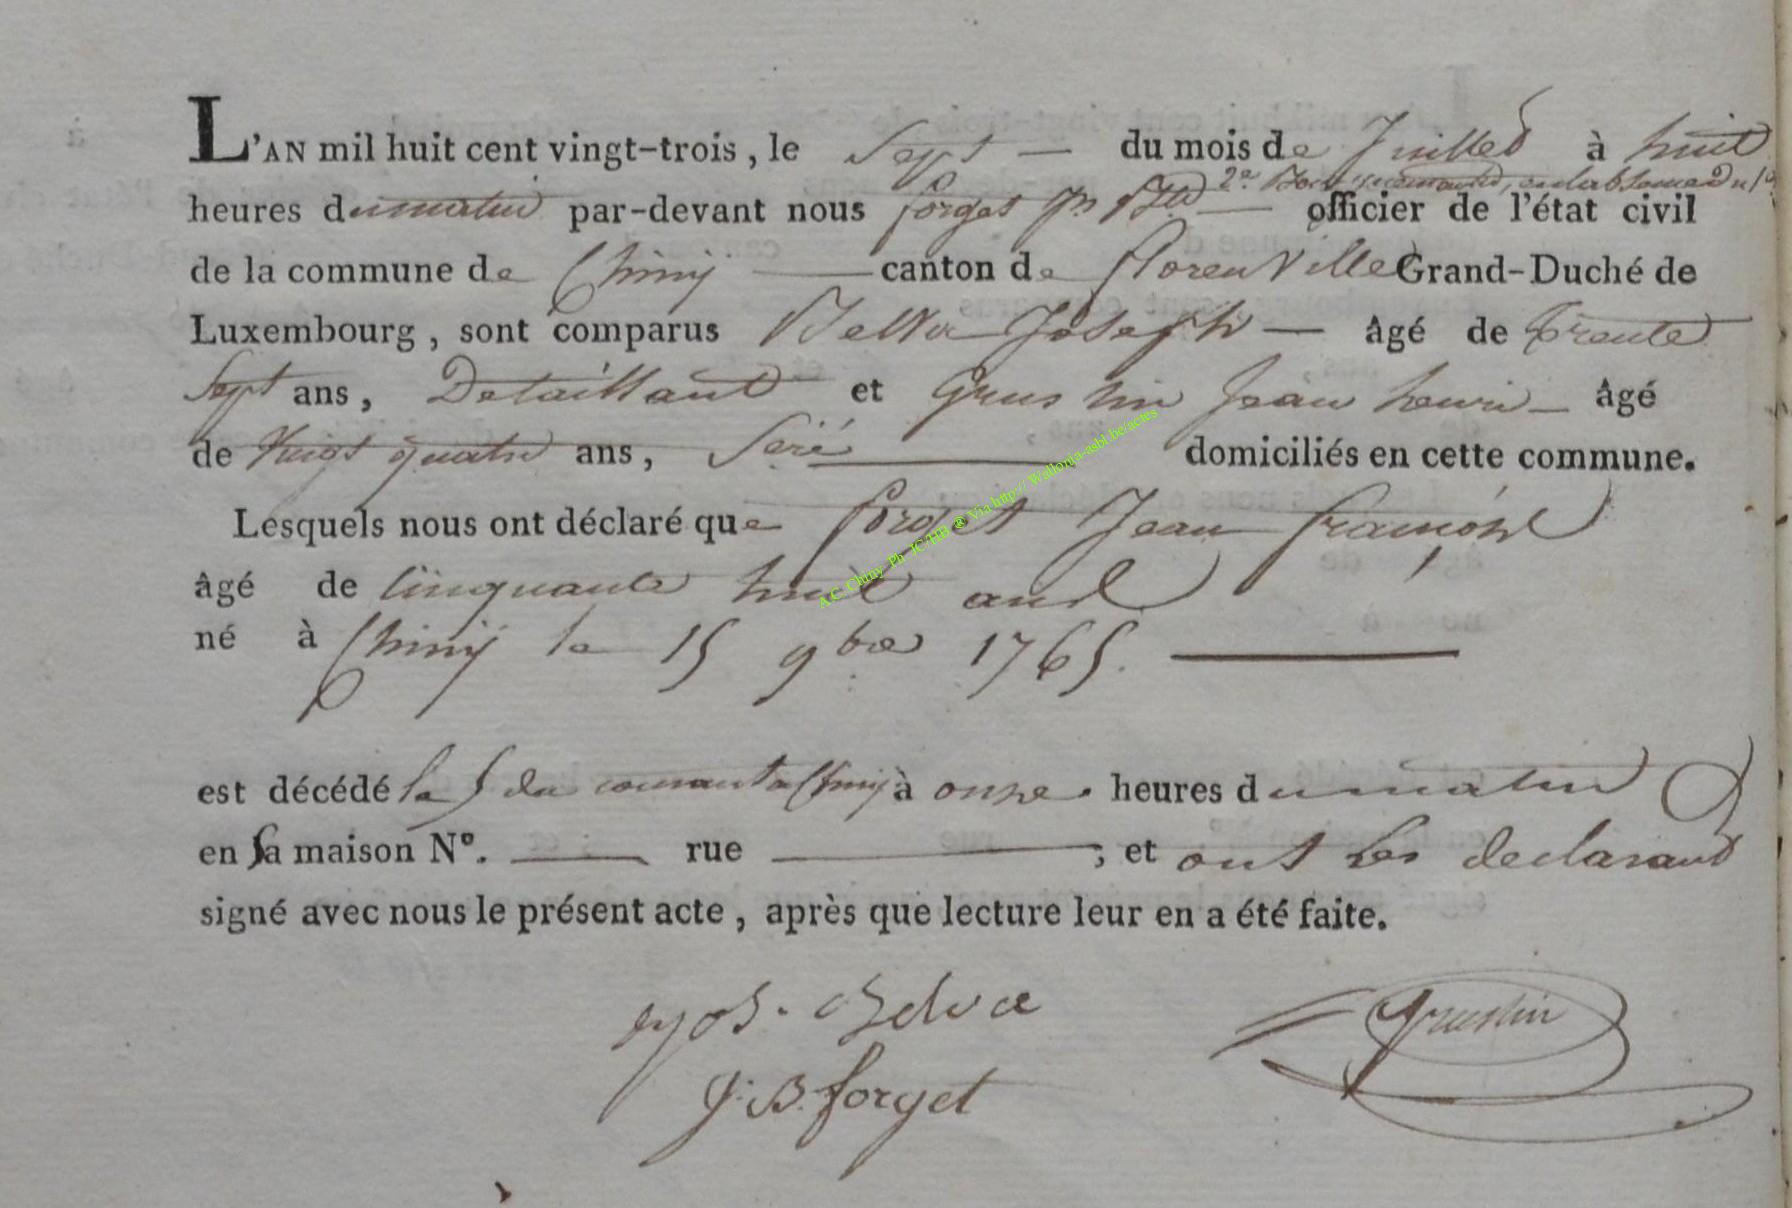 L'AN mil huit cent vingt-trois, le Sept — du mois de Juillet à huit
2e Bourguemaitre, en l'absence du 1er
heures du matin par-devant nous forget Jn Bte — officier de l'état civil
de la commune de Chiny — canton de florenville Grand-Duché de
Luxembourg, sont comparus Belva Joseph — âgé de trente
Sept ans, Detaillant et Gruslin Jean henri — âgé
de Vingt quatre ans, — domiciliés en cette commune.
Lesquels nous ont déclaré que forget Jean françois
âgé de Cinquante huit ans
né à Chiny le 15 9bre 1765. —
est décédé le 5 du courant a Chiny à onze heures du matin
en Sa maison N°. — rue —; et ont les declarant
signé avec nous le présent acte, après que lecture leur en a été faite.
jos. Belva
Gruslin
J. B. forget
A.C. Chiny Ph JC-HB ® Via http://Wallonia-asbl.be/actes